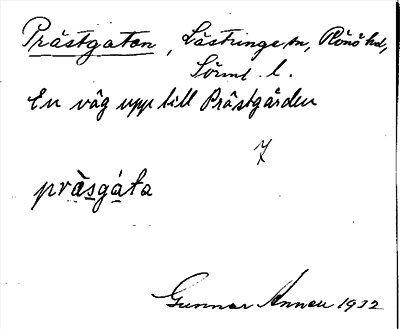 Prästgatan, Lästringe sn, Rönö hd,
Sörml. l.
En väg upp till Prästgården
7
pràsgáta
Gunnar Annell 1932